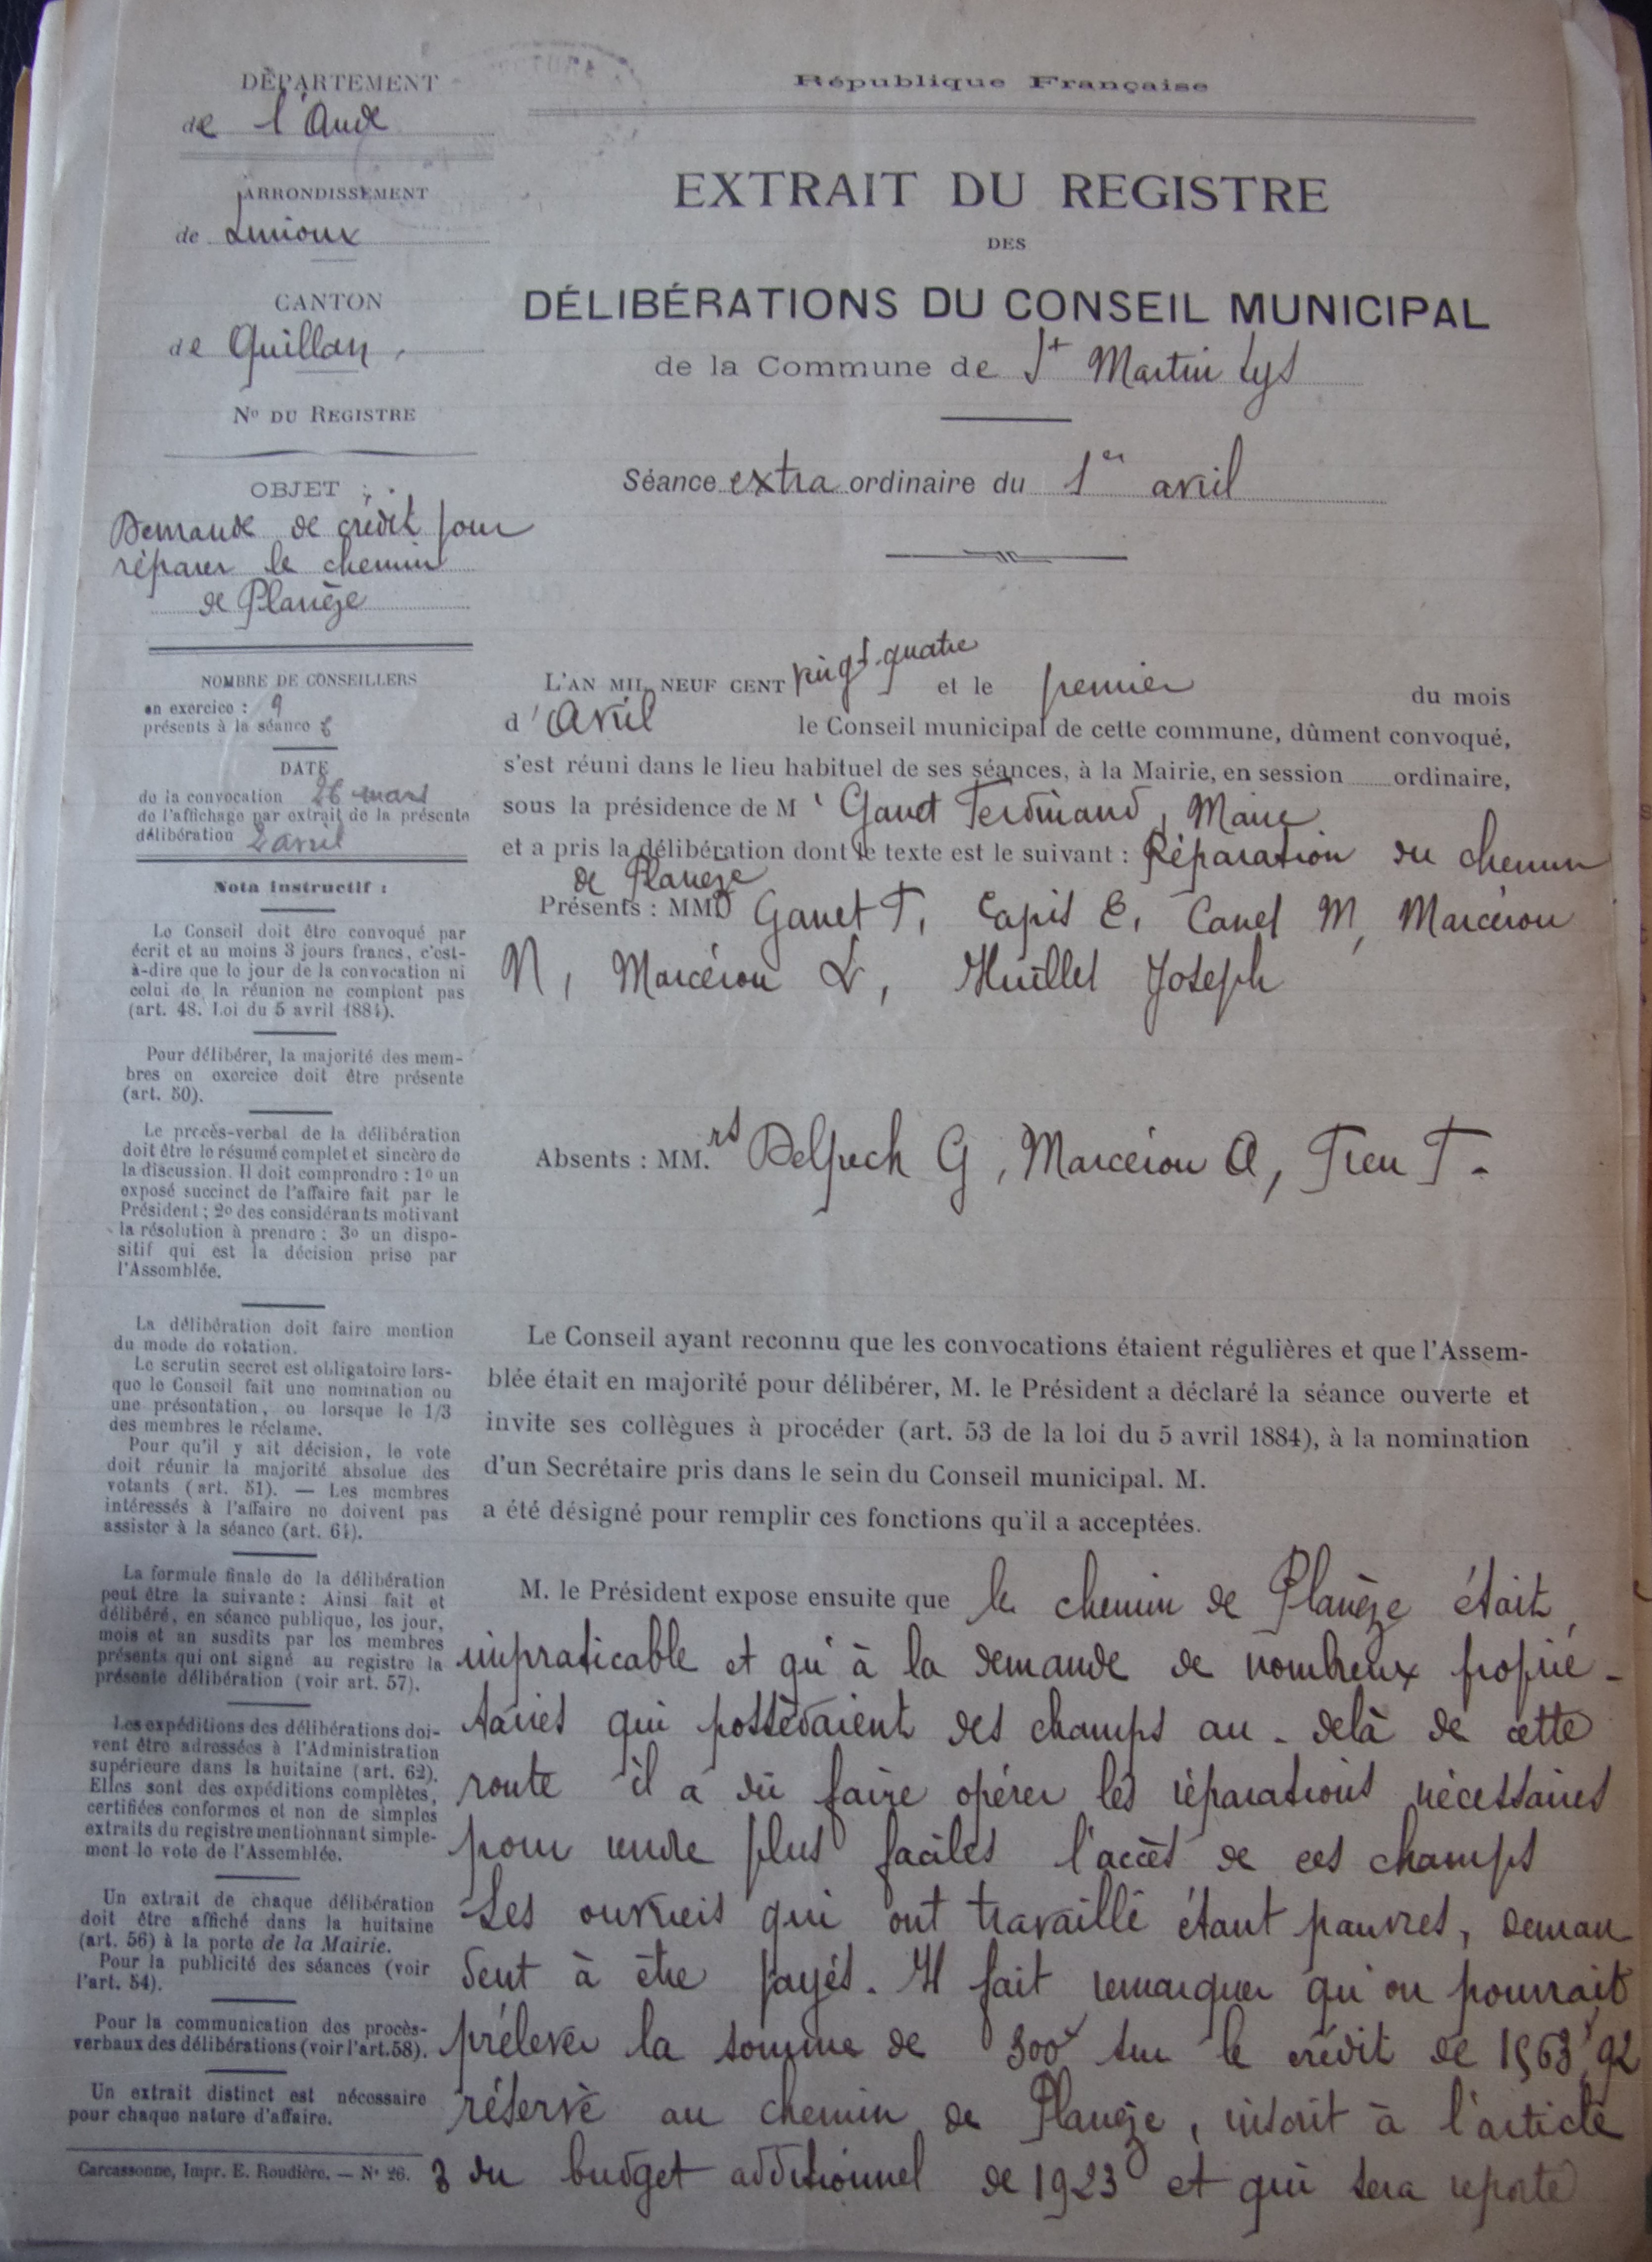 DÉPARTEMENT
de l'Aude
ARRONDISSEMENT
de Limoux
CANTON
de Quillan
N° DU REGISTRE
OBJET :
Demande de crédit pour
réparer le chemin
de Planèze
NOMBRE DE CONSEILLERS
en exercice : 9
présents à la séance 6
DATE
de la convocation 26 mars
de l'affichage par extrait de la présente
délibération 2 avril
Nota instructif :
Le Conseil doit être convoqué par
écrit et au moins 3 jours francs, c'est-
à-dire que le jour de la convocation ni
celui de la réunion ne comptent pas
(art. 48. Loi du 5 avril 1884).
Pour délibérer, la majorité des mem-
bres en exercice doit être présente
(art. 50).
Le procès-verbal de la délibération
doit être le résumé complet et sincère de
la discussion. Il doit comprendre : 1° un
exposé succinct de l'affaire fait par le
Président ; 2° des considérants motivant
la résolution à prendre : 3° un dispo-
sitif qui est la décision prise par
l'Assemblée.
La délibération doit faire mention
du mode de votation.
Le scrutin secret est obligatoire lors-
que le Conseil fait une nomination ou
une présentation, ou lorsque le 1/3
des membres le réclame.
Pour qu'il y ait décision, le vote
doit réunir la majorité absolue des
votants (art. 51). — Les membres
intéressés à l'affaire ne doivent pas
assister à la séance (art. 64).
La formule finale de la délibération
peut être la suivante : Ainsi fait et
délibéré, en séance publique, les jour,
mois et an susdits par les membres
présents qui ont signé au registre la
présente délibération (voir art. 57).
Les expéditions des délibérations doi-
vent être adressées à l'Administration
supérieure dans la huitaine (art. 62).
Elles sont des expéditions complètes,
certifiées conformes et non de simples
extraits du registre mentionnant simple-
ment le vote de l'Assemblée.
Un extrait de chaque délibération
doit être affiché dans la huitaine
(art. 56) à la porte de la Mairie.
Pour la publicité des séances (voir
l'art. 54).
Pour la communication des procès-
verbaux des délibérations (voir l'art. 58).
Un extrait distinct est nécessaire
pour chaque nature d'affaire.
Carcassonne, Impr. E. Roudière. — N° 26.
République Française
EXTRAIT DU REGISTRE
DES
DÉLIBÉRATIONS DU CONSEIL MUNICIPAL
de la Commune de St Martin Lys
Séance extra ordinaire du 1er avril
L'AN MIL NEUF CENT vingt-quatre et le premier du mois
d'Avril le Conseil municipal de cette commune, dûment convoqué,
s'est réuni dans le lieu habituel de ses séances, à la Mairie, en session ordinaire,
sous la présidence de M Ganet Ferdinand, Maire
et a pris la délibération dont le texte est le suivant : Réparation du chemin
de Planeze
Présents : MM. Ganet F, Capis E, Canel M, Marcérou
N, Marcérou L, Huillet Joseph
Absents : MM.rs Delpech G, Marcérou A, Treu T.
Le Conseil ayant reconnu que les convocations étaient régulières et que l'Assem-
blée était en majorité pour délibérer, M. le Président a déclaré la séance ouverte et
invite ses collègues à procéder (art. 53 de la loi du 5 avril 1884), à la nomination
d'un Secrétaire pris dans le sein du Conseil municipal. M.
a été désigné pour remplir ces fonctions qu'il a acceptées.
M. le Président expose ensuite que le chemin de Planèze était
impraticable et qu'à la demande de nombreux proprié-
taires qui possédaient des champs au-delà de cette
route il a dû faire opérer les réparations nécessaires
pour rendre plus faciles l'accès de ces champs
Les ouvriers qui ont travaillé étant pauvres, deman
dent à être payés. Il fait remarquer qu'on pourrait
prélever la somme de 300f sur le crédit de 1563f92
réservé au chemin de Planèze, inscrit à l'article
3 du budget additionnel de 1923 et qui sera reporté